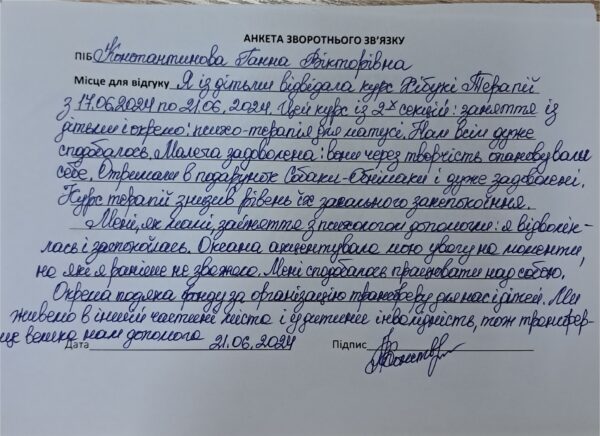 АНКЕТА ЗВОРОТНЬОГО ЗВ'ЯЗКУ
ПІБ Константинова Ганна Вікторівна
Місце для відгуку Я із дітьми відвідала курс Хібукі Терапій
з 17.06.2024 по 21.06.2024. Цей курс із 2-х секцій: заняття із
дітьми і окремо: психо-терапія для матусі. Нам всім дуже
сподобалось. Малеча задоволена: вони через творчість опановували
себе. Отримали в подарунок Собаки-Обнімаки і дуже задоволені.
Курс терапій знизив рівень їх загального занепокоїння.
Мені, як мамі, зайняття з психологом допомогли: я відволік-
лась і заспокоїлась. Оксана акцентувала мою увагу на моменти,
на які я раніше не зважала. Мені сподобалось працювати над собою.
Окрема подяка фонду за організацію трансферу для нас і дітей. Ми
живемо в іншій частині міста і у дитини інвалідність, тож трансфер-
це велика нам допомога
Дата 21.06.2024 Підпис